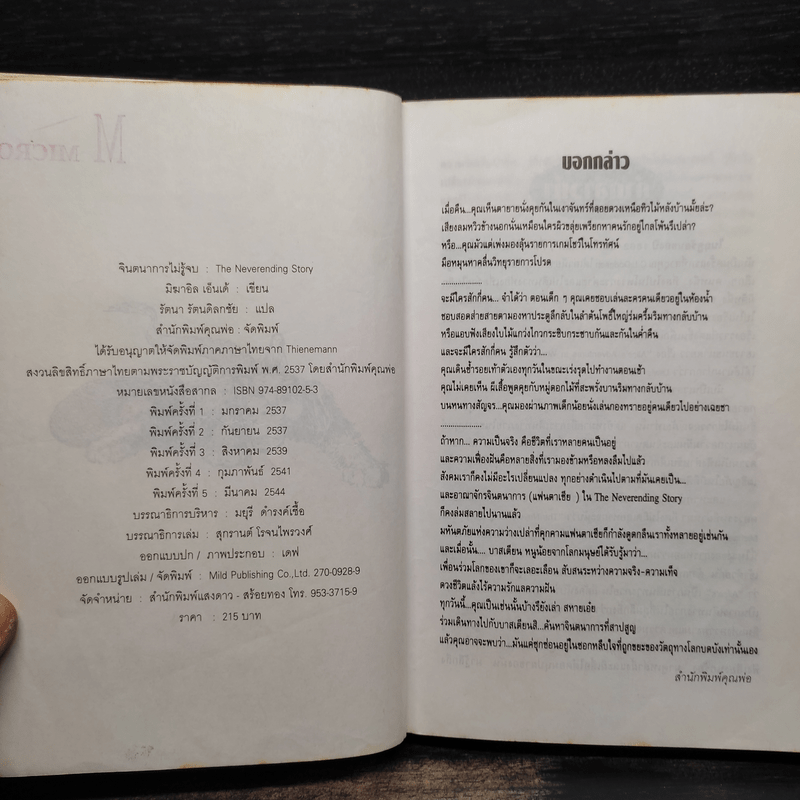 M MICRO
จินตนาการไม่รู้จบ : The Neverending Story
มิฆาอิล เอ็นเด้ : เขียน
รัตนา รัตนดิลกชัย : แปล
สำนักพิมพ์คุณพ่อ : จัดพิมพ์
ได้รับอนุญาตให้จัดพิมพ์ภาคภาษาไทยจาก Thienemann
สงวนลิขสิทธิ์ภาษาไทยตามพระราชบัญญัติการพิมพ์ พ.ศ. 2537 โดยสำนักพิมพ์คุณพ่อ
หมายเลขหนังสือสากล : ISBN 974-89102-5-3
พิมพ์ครั้งที่ 1 : มกราคม 2537
พิมพ์ครั้งที่ 2 : กันยายน 2537
พิมพ์ครั้งที่ 3 : สิงหาคม 2539
พิมพ์ครั้งที่ 4 : กุมภาพันธ์ 2541
พิมพ์ครั้งที่ 5 : มีนาคม 2544
บรรณาธิการบริหาร : มยุรี ดำรงค์เชื้อ
บรรณาธิการเล่ม : สุกรานต์ โรจนไพรวงศ์
ออกแบบปก / ภาพประกอบ : เดฟ
ออกแบบรูปเล่ม / จัดพิมพ์ : Mild Publishing Co.,Ltd. 270-0928-9
จัดจำหน่าย : สำนักพิมพ์แสงดาว - สร้อยทอง โทร. 953-3715-9
ราคา : 215 บาท
บอกกล่าว
เมื่อคืน...คุณเห็นตายายนั่งคุยกันในเงาจันทร์ที่ลอยดวงเหนือทิวไม้หลังบ้านมั้ยล่ะ?
เสียงลมหวิวข้างนอกนั่นเหมือนใครผิวขลุ่ยเพรียกหาคนรักอยู่ไกลโพ้นรึเปล่า?
หรือ...คุณมัวแต่เพ่งมองลุ้นรายการเกมโชว์ในโทรทัศน์
มือหมุนหาคลื่นวิทยุรายการโปรด
....................
จะมีใครสักกี่คน... จำได้ว่า ตอนเด็ก ๆ คุณเคยชอบเล่นละครคนเดียวอยู่ในห้องน้ำ
ชอบสอดส่ายสายตามองหาประตูลึกลับในลำต้นโพธิ์ใหญ่ร่มครึ้มริมทางกลับบ้าน
หรือแอบฟังเสียงใบไม้แกว่งไกวกระซิบกระซาบกันและกันในค่ำคืน
และจะมีใครสักกี่คน รู้สึกตัวว่า...
คุณเดินซ้ำรอยเท้าตัวเองทุกวันในขณะเร่งรุดไปทำงานตอนเช้า
คุณไม่เคยเห็น ผีเสื้อพูดคุยกับหมู่ดอกไม้ที่สะพรั่งบานริมทางกลับบ้าน
บนหนทางสัญจร...คุณมองผ่านภาพเด็กน้อยนั่งเล่นกองทรายอยู่คนเดียวไปอย่างเฉยชา
....................
ถ้าหาก... ความเป็นจริง คือชีวิตที่เราหลายคนเป็นอยู่
และความเพื่องฝันคือหลายสิ่งที่เรามองข้ามหรือหลงลืมไปแล้ว
สังคมเราก็คงไม่มีอะไรเปลี่ยนแปลง ทุกอย่างดำเนินไปตามที่มันเคยเป็น...
และอาณาจักรจินตนาการ (แฟนตาเซีย ) ใน The Neverending Story
ก็คงล่มสลายไปนานแล้ว
มหันตภัยแห่งความว่างเปล่าที่คุกคามแฟนตาเซียก็กำลังดูดกลืนเราทั้งหลายอยู่เช่นกัน
และเมื่อนั้น.... บาสเตียน หนูน้อยจากโลกมนุษย์ได้รับรู้มาว่า...
เพื่อนร่วมโลกของเขาก็จะเลอะเลือน สับสนระหว่างความจริง-ความเท็จ
ดวงชีวิตแล้งไร้ความรักแลความฝัน
ทุกวันนี้...คุณเป็นเช่นนั้นบ้างรึยังเล่า สหายเอ๋ย
ร่วมเดินทางไปกับบาสเตียนสิ...ค้นหาจินตนาการที่สาปสูญ
แล้วคุณอาจจะพบว่า...มันแค่ซุกซ่อนอยู่ในซอกหลืบใจที่ถูกขยะของวัตถุทางโลกบดบังเท่านั้นเอง
สำนักพิมพ์คุณพ่อ